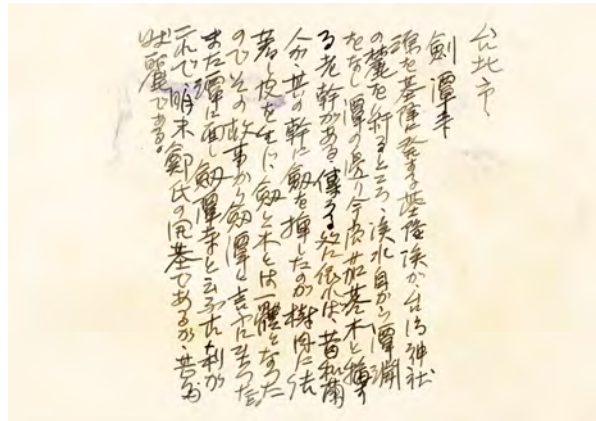 台北市、
劍潭寺
源を基隆に発する基隆渓が、台湾神社
の麓を紆るところ、渓水自から潭淵
をなし潭の辺り今尚茄苳木と称す
る老幹がある、傳ふる処に依れば、昔和蘭
人が、其の幹に劔を揮したのが樹肉に
着し皮を生じ、劔と木とは一體となった
のでその故事から劔潭と言ふに至った、
また潭に面し劔潭寺と云ふ古刹が
これで明末鄭氏の開基であるが、其
壮麗である。